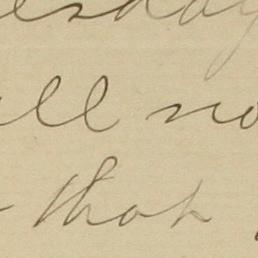 esday
ell no
that